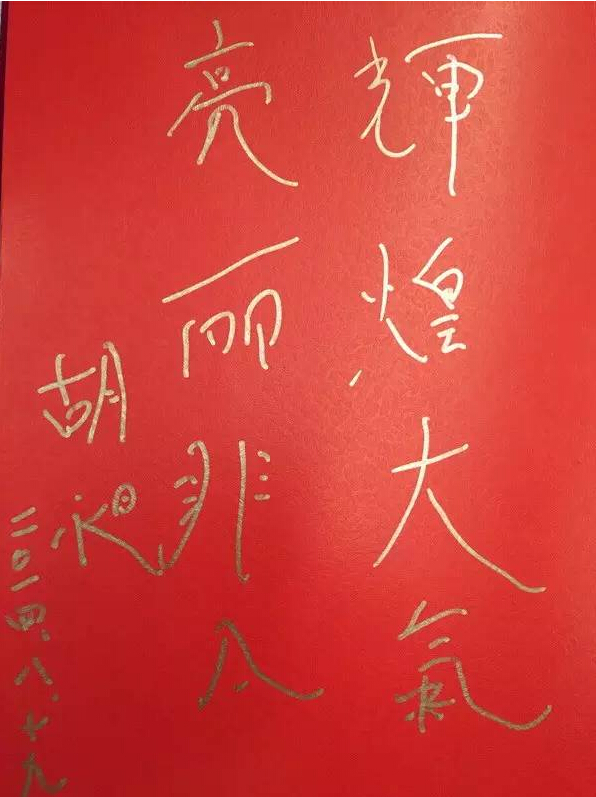 輝煌大氣
亮丽非凡
胡昶
二〇一四、八、十九